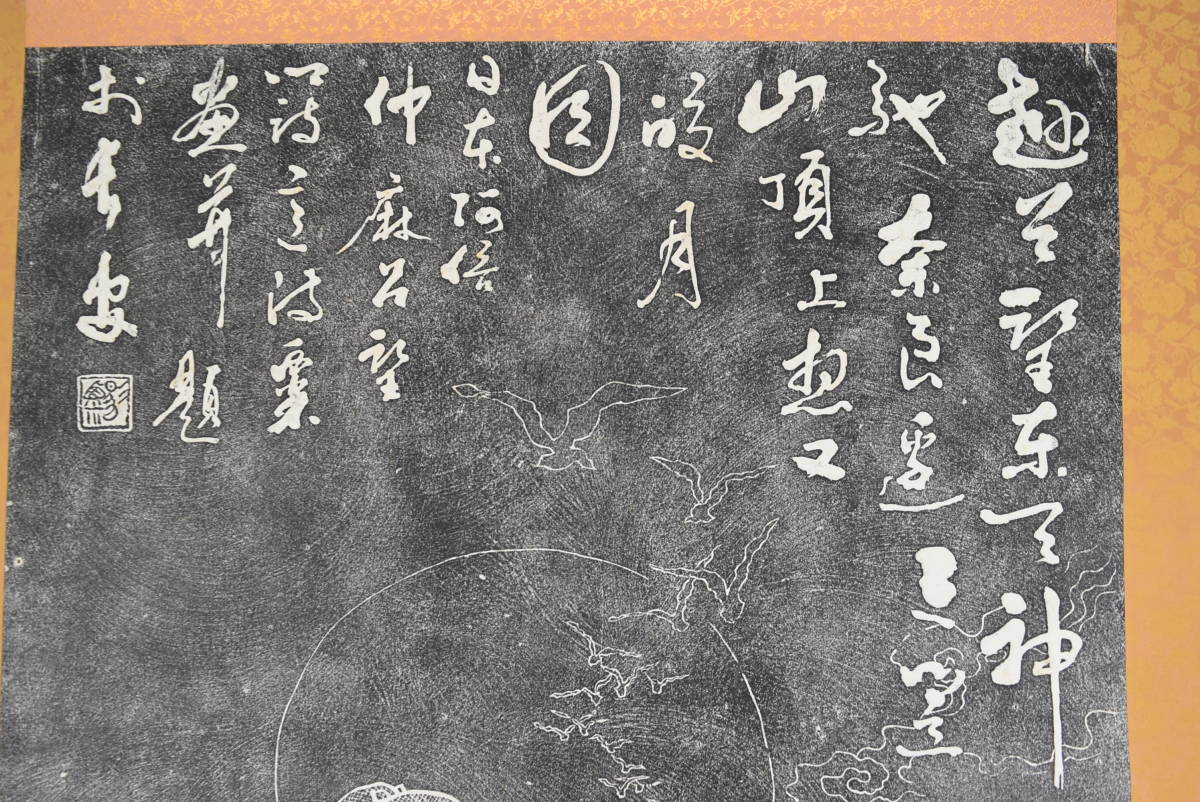 翹首望東天神
馳奈良邊三笠
山頂上想又
皎月
圓
日本阿倍
仲麻吕望
鄉詩意
畫并題
於長安